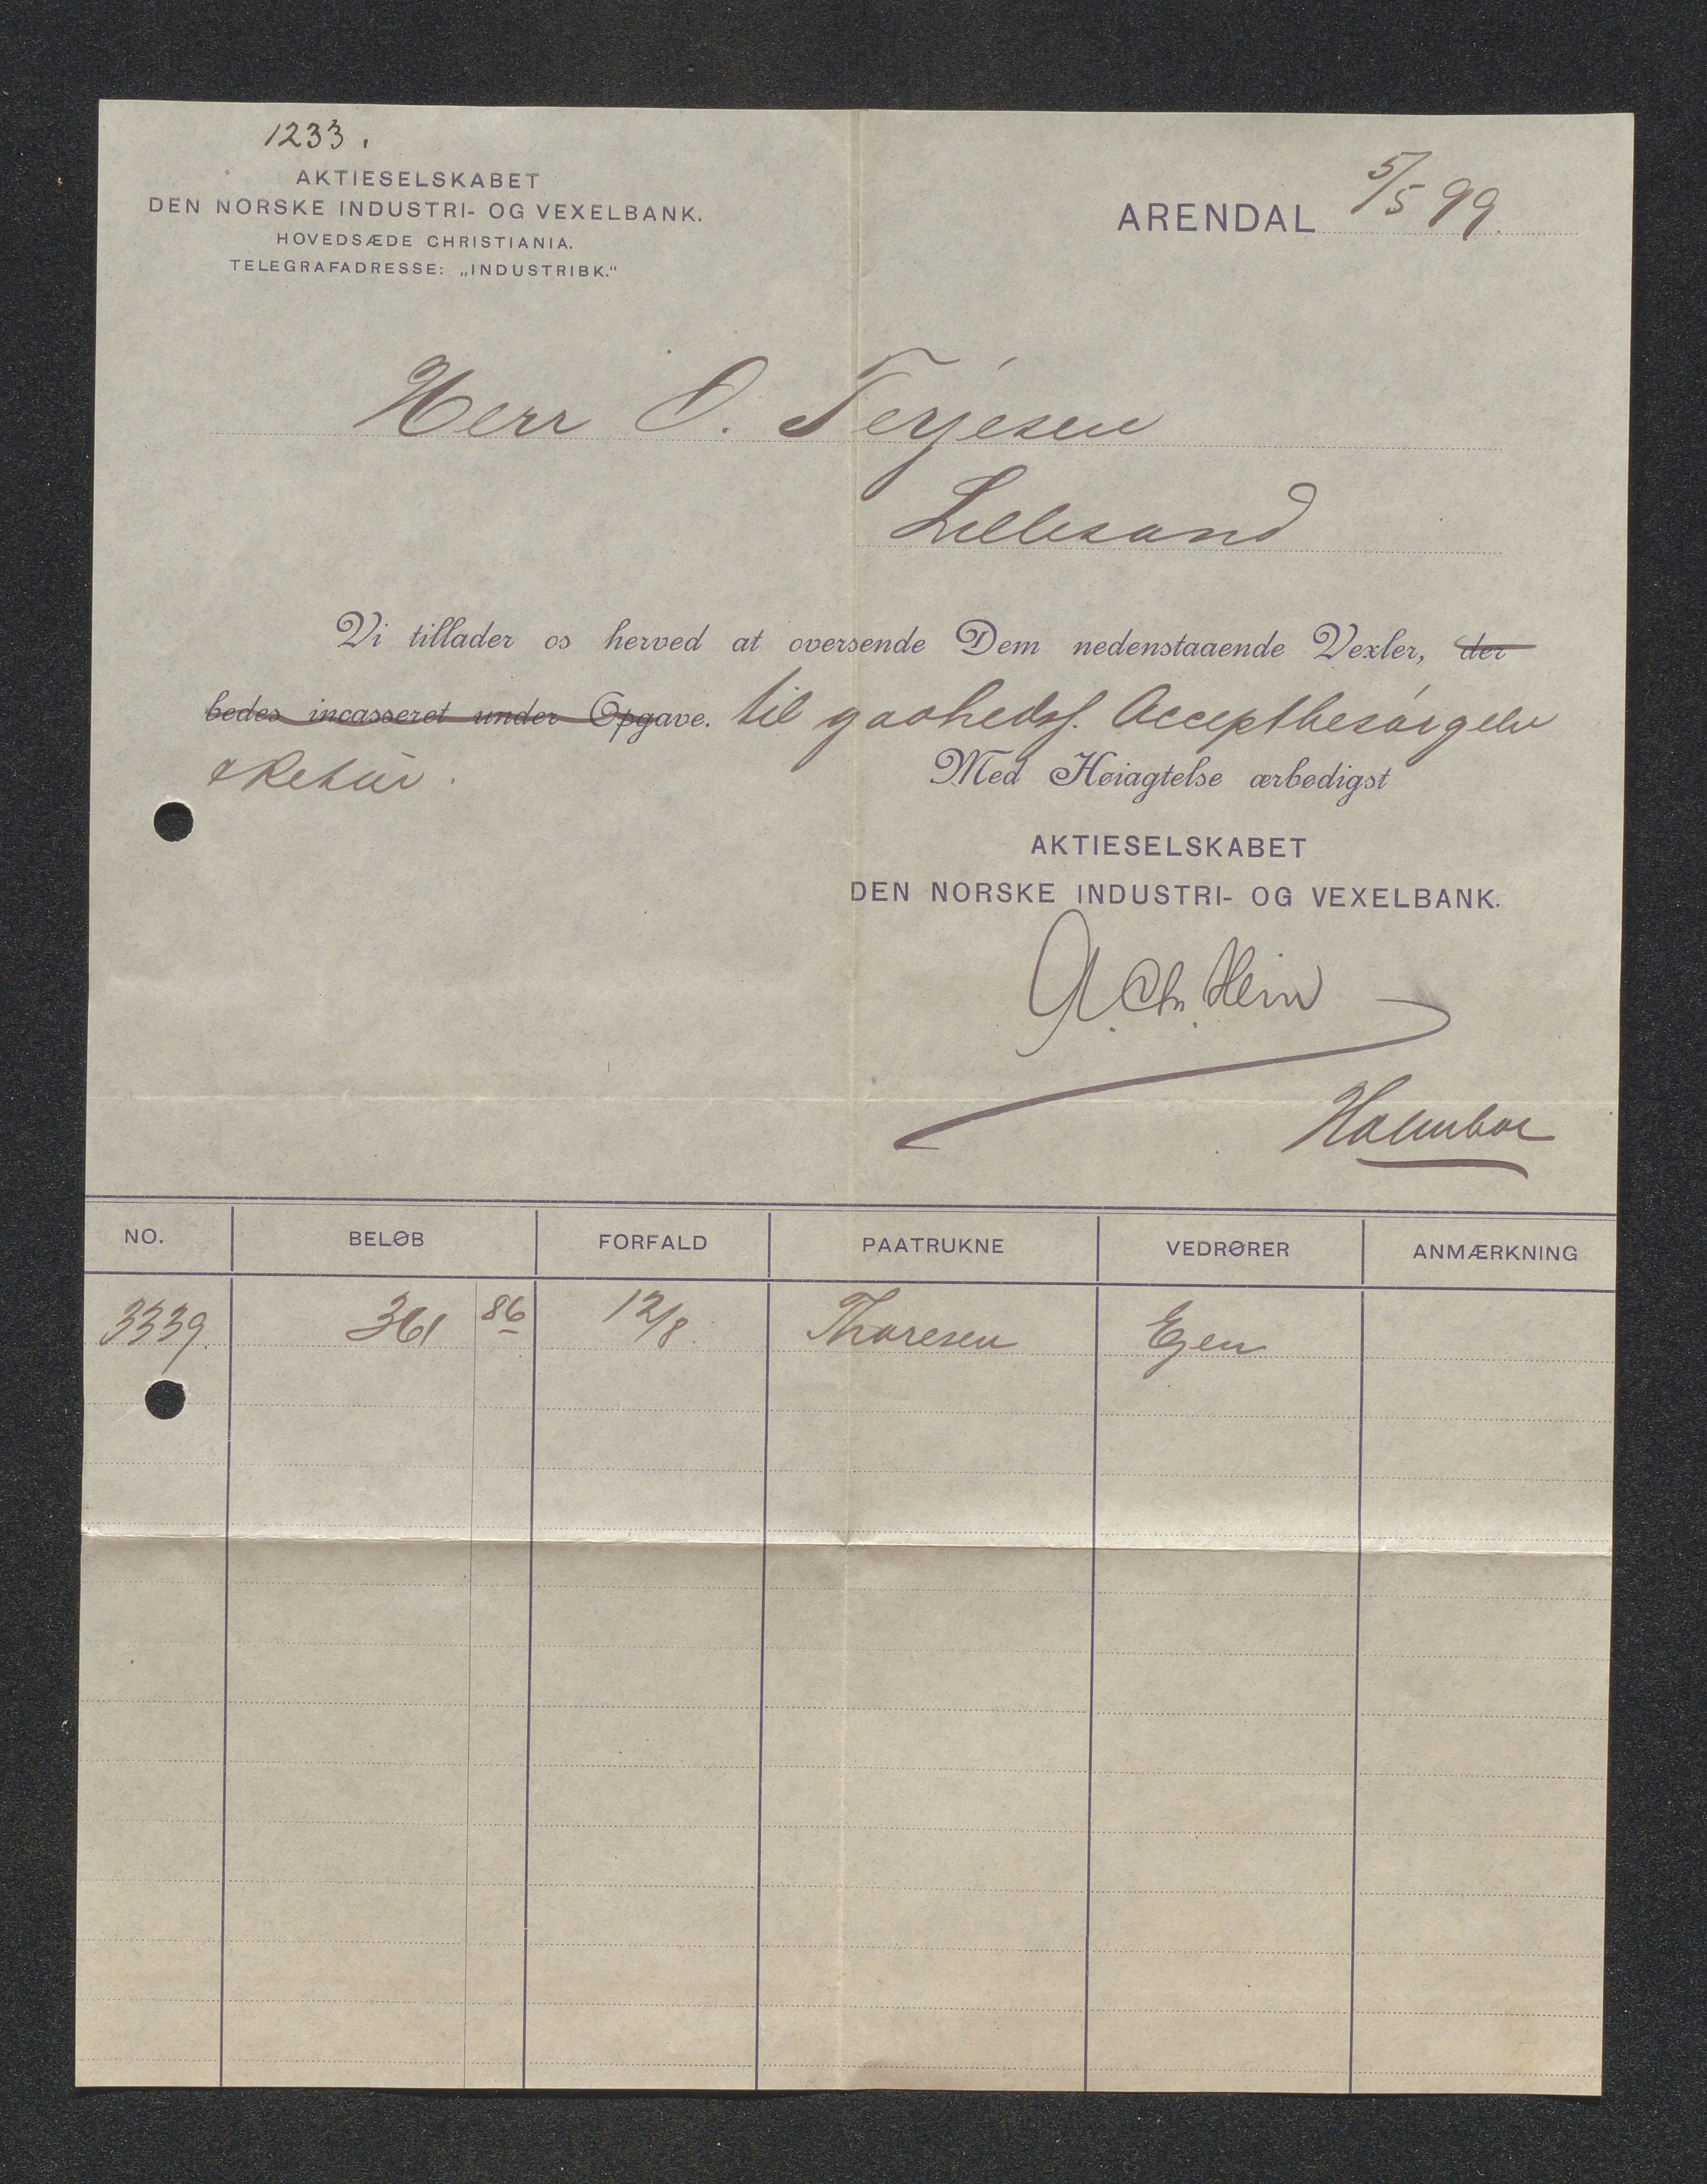 1233.
AKTIESELSKABET
DEN NORSKE INDUSTRI- OG VEXELBANK.
HOVEDSÆDE CHRISTIANIA.
TELEGRAFADRESSE: „INDUSTRIBK."
ARENDAL 5/5 99.
Herr O. Terjesen
Lillesand
Vi tillader os herved at oversende Dem nedenstaaende Vexler, der
bedes incasseret under Opgave. til Acceptbesørgelse
& Retur.
Med Høiagtelse ærbødigst
AKTIESELSKABET
DEN NORSKE INDUSTRI- OG VEXELBANK.
Chr.
Holmboe
NO. BELØB FORFALD PAATRUKNE VEDRØRER ANMÆRKNING
3339. 361 86 12/8 Thoresen Egen